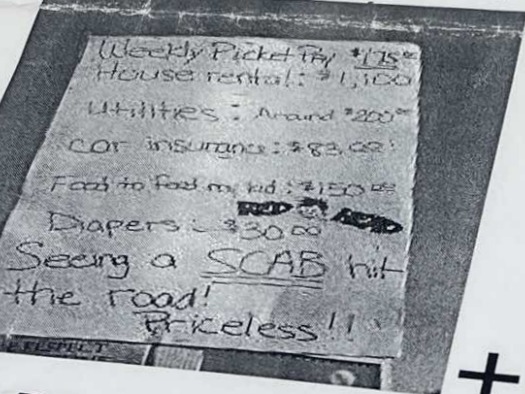 Weekly Picket Pay $175.00
House rental: $1,100
Utilities: Around $200.00
car insurance: $83.00
Food to feed my kid: $150.00
Diapers: $30.00
Seeing a SCAB hit
the road!
Priceless!!